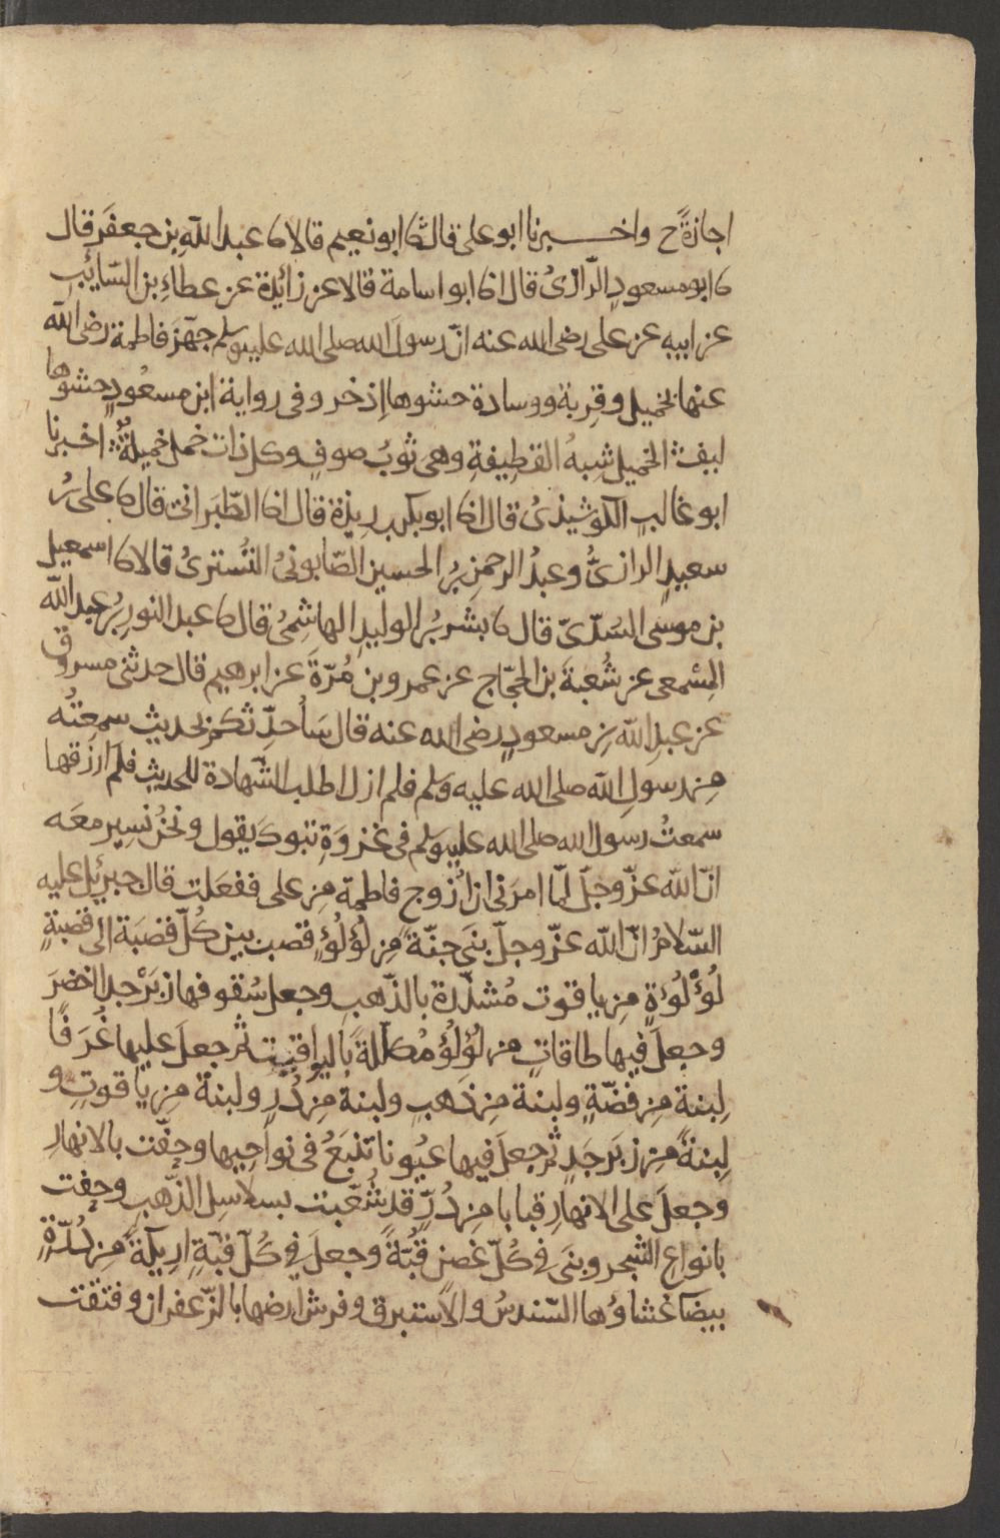 اجازةً ح واخبرنا ابو على قال ثنا ابو نعيم قالا نا عبد اللّه بن جعفر قال
نا ابو مسعودٍ الرّازىُ قال انا ابو اسامة قالا عن زائدة عن عطاءِ بن السّايبِ
عن ابيه عن على رضى الله عنه انّ رسولَ الله صلى الله عليه وسلم جهّزَ فاطمة رضى اللّه
عنها بخميل وقِربة ووسادة حشوها إذخر وفى رواية ابن مسعُودٍ حشوها
ليف ؞ الخميل شِبهُ القطِيفةِ وهى ثوبُ صوفٍ وكل ذات خمل خميلةٌ ؞ اخبرنا
ابو غالبٍ الكوشيذىُ قال انا ابو بكر بن رِيذة قال انا الطّبَرانى قال نا على بنُ
سعيدٍ الرازىُّ وعبدُ الرحمنِ بنُ الحسين الصّابونىُ التُسترىُ قالا نا اسمعيل
بن موسى السُدّىّ قال نا بشر بنُ الوليدِ الهاشِمىُ قال نا عبد النورِ بنُ عبد اللّه
المِسْمعى عن شُعبةَ بن الحجّاج عن عمرو بن مُرّةَ عن ابرهيم قال حدثنى مسروق
عن عبدِ اللّه بنِ مسعودٍ رضى الله عنه قال سَأُحدّثكم بحديثٍ سمعتُه
مِن رسولِ اللّه صلى الله عليه وسلم فلم ازل اطلب الشّهادة للحديثِ فلم ارزقها
سمعتُ رسول الله صلى الله عليه وسلم فى غزوَةِ تبوك يقول ونحنُ نسِير معَه
انّ اللّه عزّ وجلّ لمّا امرَنى ان ازوج فاطمة مِن على ففعَلت قال جبرئيل عليه
السّلامُ انّ اللّه عزّ وجلّ بنَى جنّةً مِن لُؤلُؤٍ قصب بين كُلّ قصَبَة الى قصبةٍ
لُؤْلُؤةٍ مِن ياقوت مُشدّدة بالذّهبِ وجعل سُقوفها زبَرْجدا اخضرَ
وجعلَ فيها طاقاتٍ من لُؤلُؤ مُكلّلةً باليواقيت ثم جعلَ عليها غُرَفًا
لِبنة مِن فضّةٍ ولبنة مِن ذهبٍ ولبنة مِن دُرٍ ولبنة مِن ياقوتٍ و
لِبنةً مِن زبَرجَدٍ ثم جعلَ فيها عيُونا تنبَعُ فى نواحِيها وحفّت بالانهارِ
وجعلَ على الانهارِ قبابا مِن دُرٍّ قد شُعّبت بسلاسِل الذّهبِ وحفت
بانواعِ الشجر وبنَى فى كُلّ غصن قُبّةً وجعلَ فى كُلّ قبّةٍ اريكةً مِن دُرّةٍ
بيضآ غشاوُها السّندسُ والاستبرق وفرش ارضها بالزّعفران وفتقت